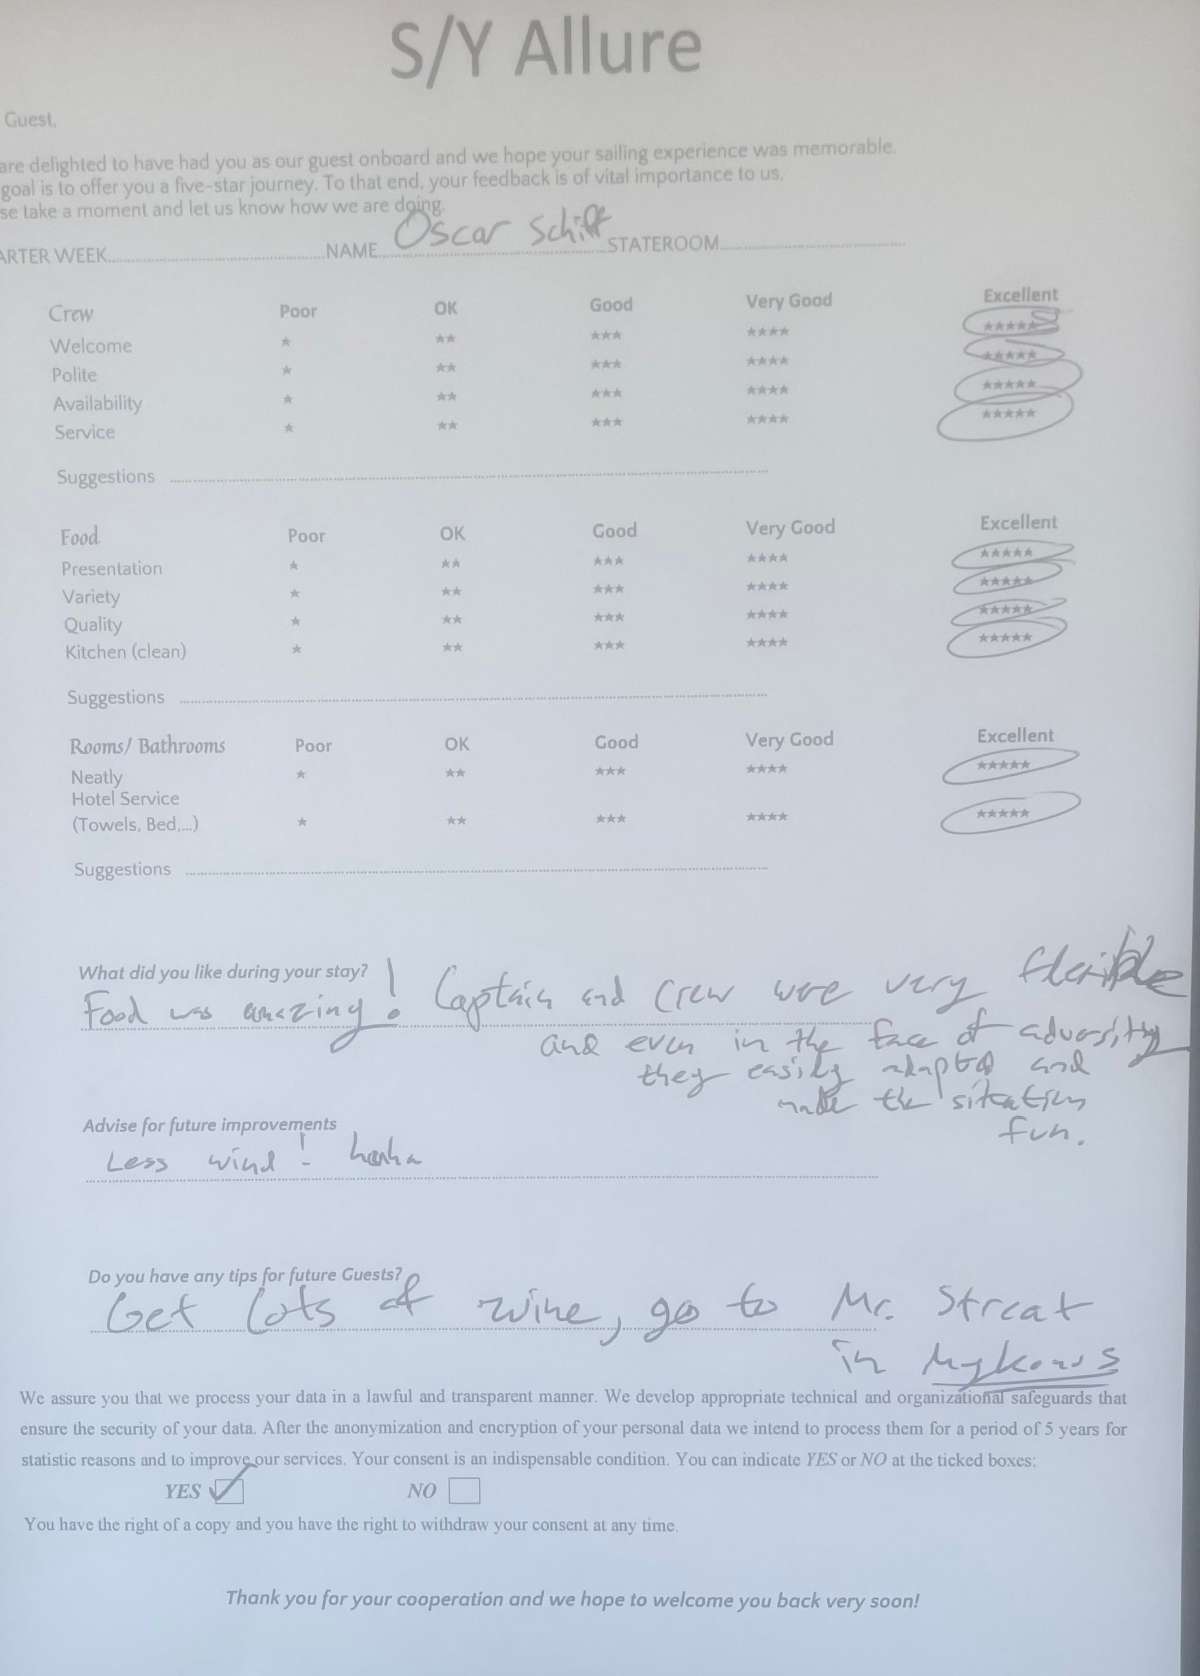 S/Y Allure
Guest,
are delighted to have had you as our guest onboard and we hope your sailing experience was memorable.
goal is to offer you a five-star journey. To that end, your feedback is of vital importance to us,
se take a moment and let us know how we are doing.
ARTER WEEK............NAME Oscar Schift STATEROOM............
Crew Poor OK Good Very Good Excellent
Welcome ★ ★★ ★★★ ★★★★ ★★★★★
Polite ★ ★★ ★★★ ★★★★ ★★★★★
Availability ★ ★★ ★★★ ★★★★ ★★★★★
Service ★ ★★ ★★★ ★★★★ ★★★★★
Suggestions ............
Food Poor OK Good Very Good Excellent
Presentation ★ ★★ ★★★ ★★★★ ★★★★★
Variety ★ ★★ ★★★ ★★★★ ★★★★★
Quality ★ ★★ ★★★ ★★★★ ★★★★★
Kitchen (clean) ★ ★★ ★★★ ★★★★ ★★★★★
Suggestions ............
Rooms/ Bathrooms Poor OK Good Very Good Excellent
Neatly ★ ★★ ★★★ ★★★★ ★★★★★
Hotel Service
(Towels, Bed,...) ★ ★★ ★★★ ★★★★ ★★★★★
Suggestions ............
What did you like during your stay?
Food was amazing! Captain and crew were very flexible
and even in the face of adversity
they easily adapted and
made the situation
fun.
Advise for future improvements
Less wind! haha
Do you have any tips for future Guests?
Get lots of wine, go to Mr. Streat
in Mykonos
We assure you that we process your data in a lawful and transparent manner. We develop appropriate technical and organizational safeguards that
ensure the security of your data. After the anonymization and encryption of your personal data we intend to process them for a period of 5 years for
statistic reasons and to improve our services. Your consent is an indispensable condition. You can indicate YES or NO at the ticked boxes:
YES ☑ NO ☐
You have the right of a copy and you have the right to withdraw your consent at any time.
Thank you for your cooperation and we hope to welcome you back very soon!